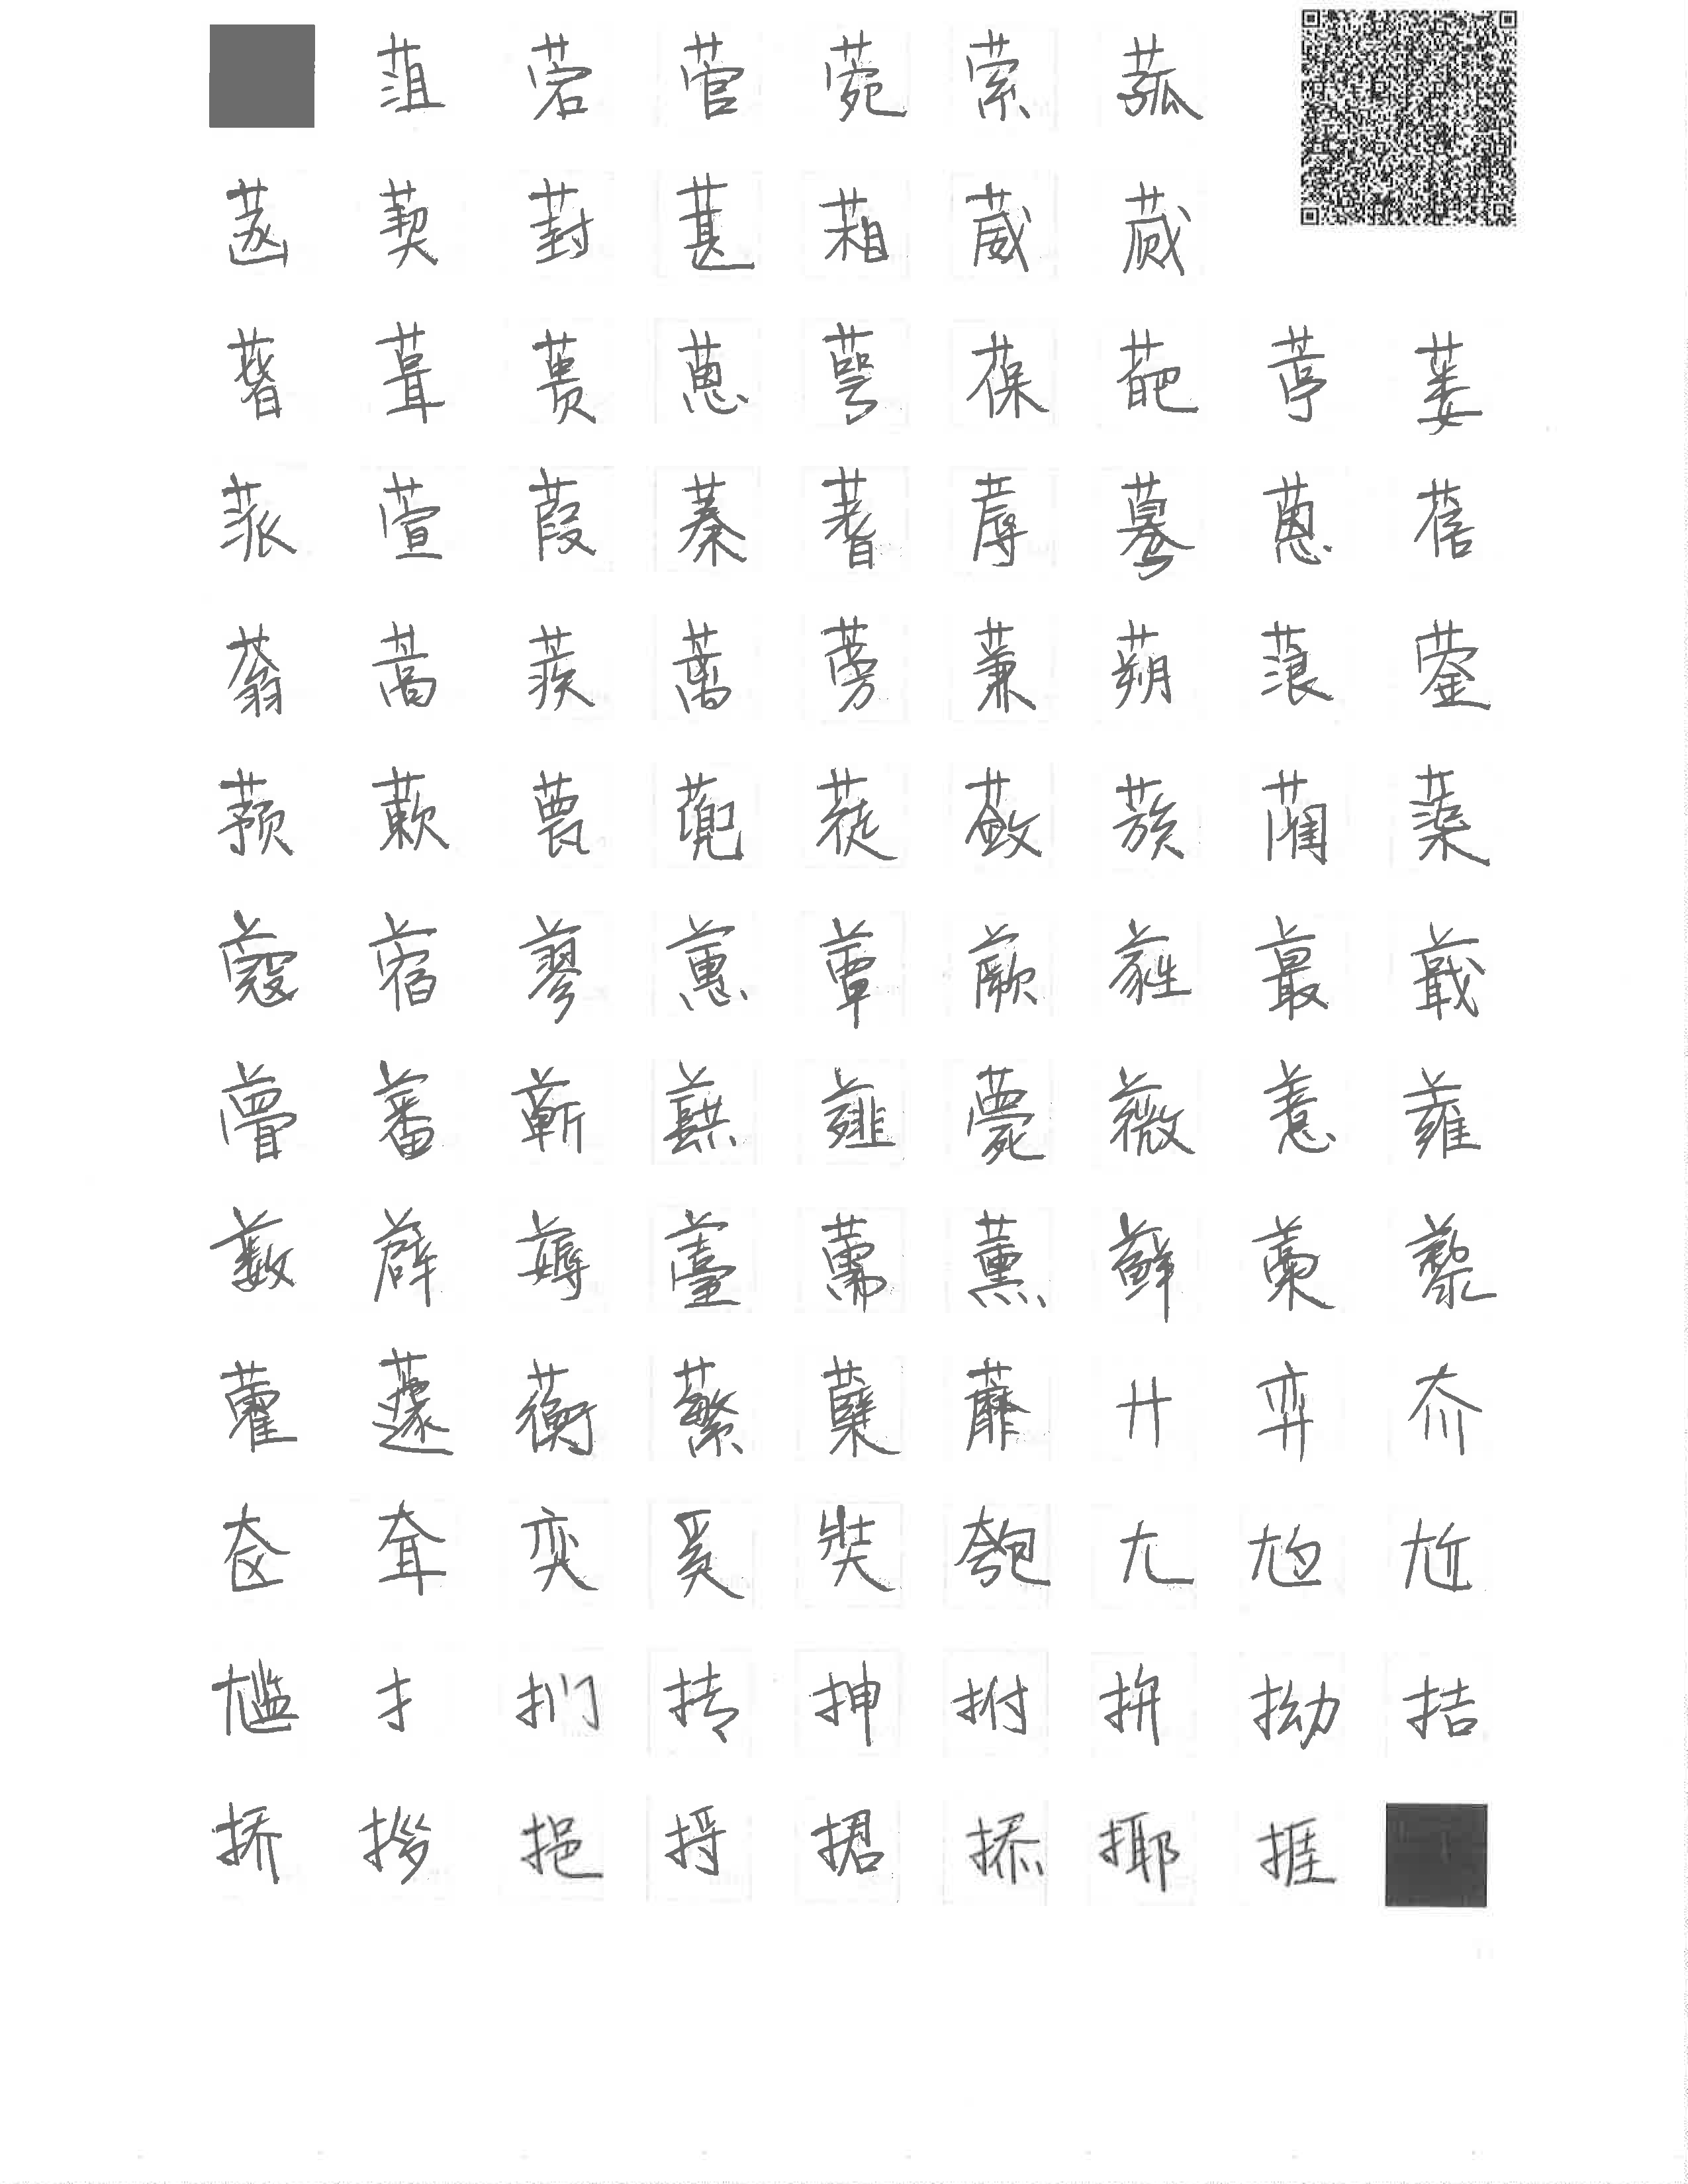 菹菪菅菀萦菰
菡葜葑葚葙葳蒇
蒈葺蒉葸萼葆葩葶蒌
蒎萱葭蓁蓍蓐蓦蒽蓓
蓊蒿蒺蓠蒡蒹蒴蒗蓥
蓣蔌甍蔸蓰蔹蔟蔺蕖
蔻蓿蓼蕙蕈蕨蕤蕞蕺
瞢蕃蕲蕻薤薨薇薏蕹
薮薜薅薹薷薰藓藁藜
藿蘧蘅蘩蘖蘼廾弈夼
奁耷奕奚奘匏尢尥尬
尴扌扪抟抻拊拚拗拮
挢拶挹捋捃掭揶捱